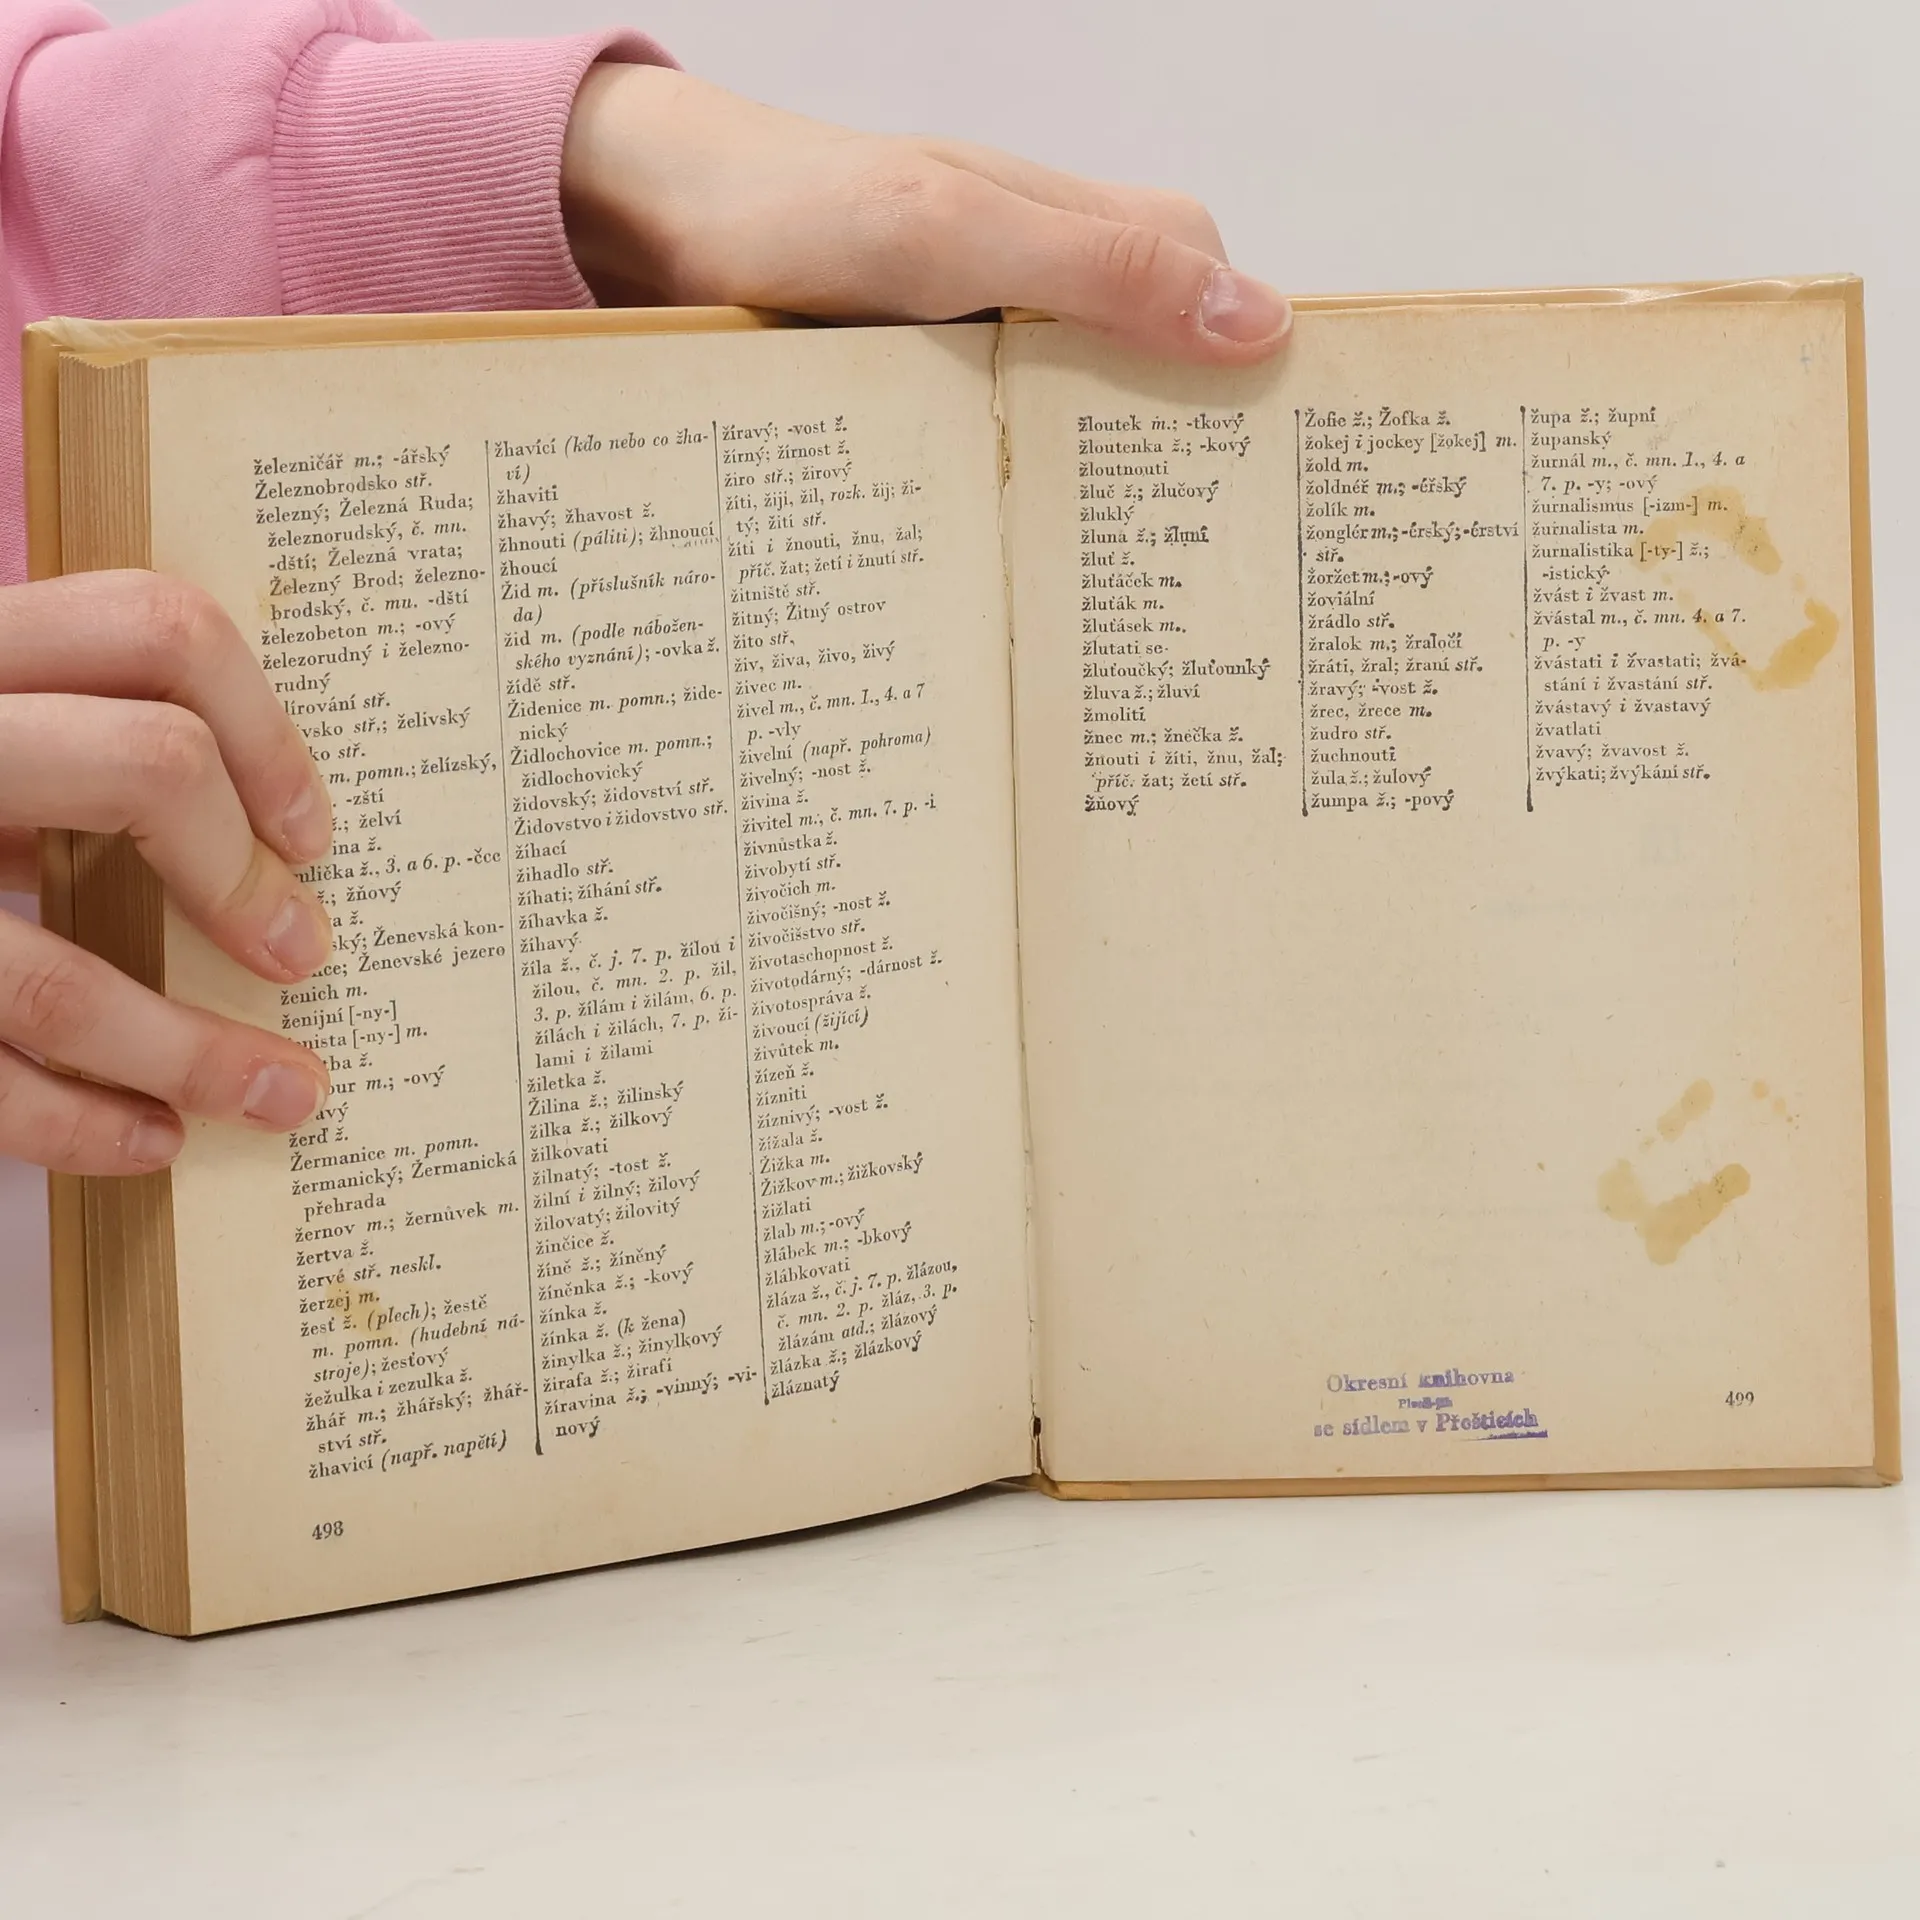 železničář m.; -ářský
Železnobrodsko stř.
železný; Železná Ruda;
železnorudský, č. mn.
-dští; Železná vrata;
Železný Brod; železno-
brodský, č. mn. -dští
železobeton m.; -ový
železorudný i železno-
rudný
lírování stř.
vsko stř.; želivský
ko stř.
m. pomn.; želízský,
-zští
ž.; želví
ina ž.
mlička ž., 3. a 6. p. -čce
ž.; žňový
va ž.
ský; Ženevská kon-
nce; Ženevské jezero
ženich m.
ženijní [-ny-]
nista [-ny-] m.
tba ž.
our m.; -ový
avý
žerď ž.
Žermanice m. pomn.
žermanický; Žermanická
přehrada
žernov m.; žernůvek m.
žertva ž.
žervé stř. neskl.
žerzej m.
žesť ž. (plech); žestě
m. pomn. (hudební ná-
stroje); žesťový
žežulka i zezulka ž.
žhář m.; žhářský; žhář-
ství stř.
žhavicí (např. napětí)
žhavící (kdo nebo co žha-
ví)
žhaviti
žhavý; žhavost ž.
žhnouti (páliti); žhnoucí
žhoucí
Žid m. (příslušník náro-
da)
žid m. (podle nábožen-
ského vyznání); -ovka ž.
žídě stř.
Židenice m. pomn.; žide-
nický
Židlochovice m. pomn.;
židlochovický
židovský; židovství stř.
Židovstvo i židovstvo stř.
žíhací
žihadlo stř.
žíhati; žíhání stř.
žíhavka ž.
žíhavý
žíla ž., č. j. 7. p. žílou i
žilou, č. mn. 2. p. žil,
3. p. žílám i žilám, 6. p.
žílách i žilách, 7. p. ží-
lami i žilami
žiletka ž.
Žilina ž.; žilinský
žilka ž.; žilkový
žilkovati
žilnatý; -tost ž.
žilní i žilný; žilový
žilovatý; žilovitý
žinčice ž.
žíně ž.; žíněný
žíněnka ž.; -kový
žínka ž.
žínka ž. (k žena)
žinylka ž.; žinylkový
žirafa ž.; žirafí
žíravina ž.; -vinný; -vi-
nový
žíravý; -vost ž.
žírný; žírnost ž.
žiro stř.; žirový
žíti, žiji, žil, rozk. žij; ži-
tý; žití stř.
žíti i žnouti, žnu, žal;
příč. žat; žetí i žnutí stř.
žitniště stř.
žitný; Žitný ostrov
žito stř.
živ, živa, živo, živý
živec m.
živel m., č. mn. 1., 4. a 7
p. -vly
živelní (např. pohroma)
živelný; -nost ž.
živina ž.
živitel m., č. mn. 7. p. -i
živnůstka ž.
živobytí stř.
živočich m.
živočišný; -nost ž.
živočišstvo stř.
životaschopnost ž.
životodárný; -dárnost ž.
životospráva ž.
živoucí (žijící)
živůtek m.
žízeň ž.
žízniti
žíznivý; -vost ž.
žížala ž.
Žižka m.
Žižkov m.; žižkovský
žižlati
žlab m.; -ový
žlábek m.; -bkový
žlábkovati
žláza ž., č. j. 7. p. žlázou,
č. mn. 2. p. žláz, 3. p.
žlázám atd.; žlázový
žlázka ž.; žlázkový
žláznatý
498
žloutek m.; -tkový
žloutenka ž.; -kový
žloutnouti
žluč ž.; žlučový
žluklý
žluna ž.; žluní
žluť ž.
žluťáček m.
žluťák m.
žluťásek m.
žlutati se
žluťoučký; žluťounký
žluva ž.; žluví
žmoliti
žnec m.; žnečka ž.
žnouti i žíti, žnu, žal;
příč. žat; žetí stř.
žňový
Žofie ž.; Žofka ž.
žokej i jockey [žokej] m.
žold m.
žoldnéř m.; -éřský
žolík m.
žonglér m.; -érský; -érství
stř.
žoržet m.; -ový
žoviální
žrádlo stř.
žralok m.; žraločí
žráti, žral; žraní stř.
žravý; -vost ž.
žrec, žrece m.
žudro stř.
žuchnouti
žula ž.; žulový
žumpa ž.; -pový
župa ž.; župní
županský
žurnál m., č. mn. 1., 4. a
7. p. -y; -ový
žurnalismus [-izm-] m.
žurnalista m.
žurnalistika [-ty-] ž.;
-istický
žvást i žvast m.
žvástal m., č. mn. 4. a 7.
p. -y
žvástati i žvastati; žvá-
stání i žvastání stř.
žvástavý i žvastavý
žvatlati
žvavý; žvavost ž.
žvýkati; žvýkání stř.
Okresní knihovna
se sídlem v Přešticích
499